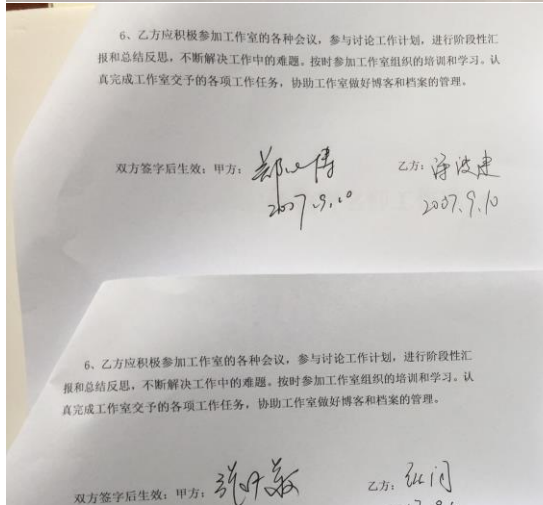 6、乙方应积极参加工作室的各种会议，参与讨论工作计划，进行阶段性汇
报和总结反思，不断解决工作中的难题。按时参加工作室组织的培训和学习。认
真完成工作室交予的各项工作任务，协助工作室做好博客和档案的管理。
双方签字后生效：甲方： 乙方：
2007.9.10 2007.9.10
6、乙方应积极参加工作室的各种会议，参与讨论工作计划，进行阶段性汇
报和总结反思，不断解决工作中的难题。按时参加工作室组织的培训和学习。认
真完成工作室交予的各项工作任务，协助工作室做好博客和档案的管理。
双方签字后生效：甲方： 乙方：